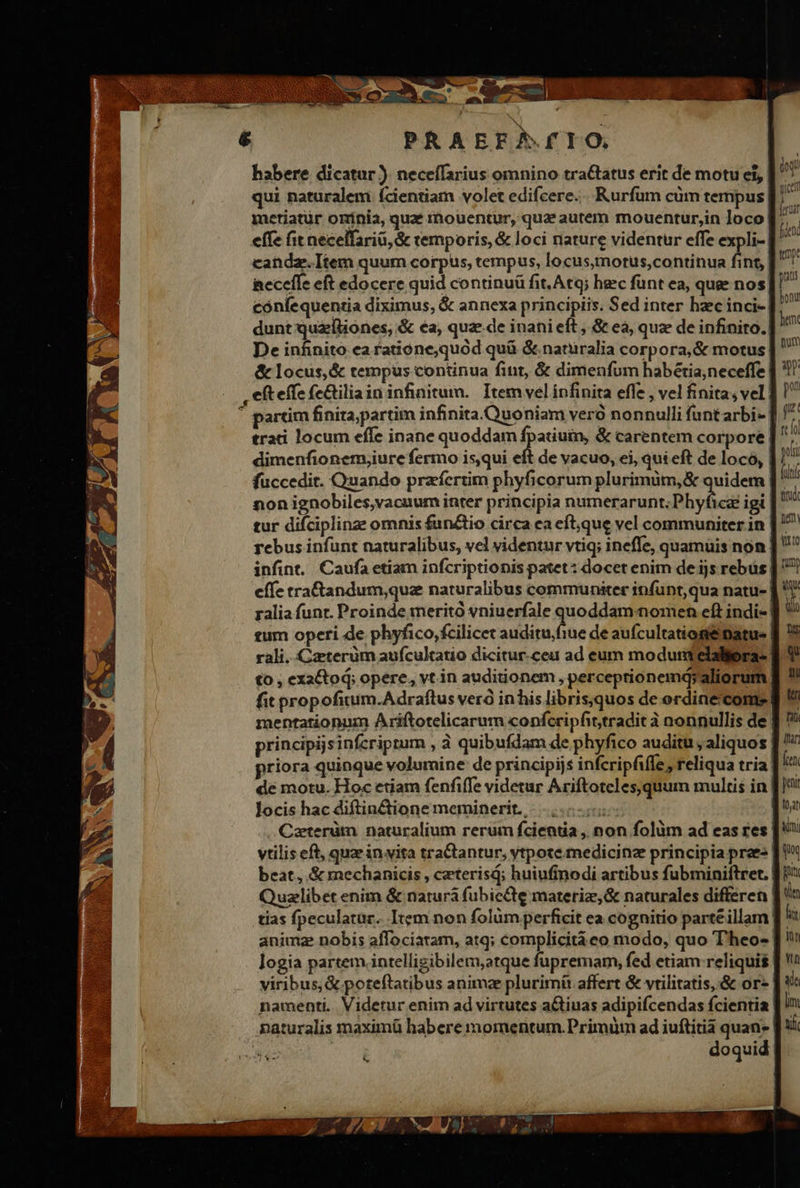 6 PRAEFATIO.
habere dicatur) neceſſarius omnino tractatus erit de motu ei,
qui naturalem ſcientiam volet ediſcere. Rurſum cùm tempus
metiatur omnia, quæ mouentur, quæ autem mouentur, in loco
eſſe ſit neceſſariũ, & temporis, & loci naturę videntur eſſe expli-
candæ. Item quum corpus, tempus, locus, motus, continua ſint,
neceſſe eſt edocere quid continuũ ſit. Atq; hæc ſunt ea, quæ nos
conſequentia diximus, & annexa principiis. Sed inter hæc inci-
dunt quæſtiones, & ea, quæ de inani eſt, & ea, quæ de infinito.
De infinito ea ratione, quòd quũ & naturalia corpora, & motus
& locus, & tempus continua ſint, & dimenſum habẽtia, neceſſe
eſt eſſe ſectilia in infinitum. Item vel infinita eſſe, vel finita, vel
partim finita, partim infinita. Quoniam verò nonnulli ſunt arbi-
trati locum eſſe inane quoddam ſpatium, & carentem corpore
dimenſionem, iure ſermo is, qui eſt de vacuo, ei, qui eſt de loco,
ſuccedit. Quando præſertim phyſicorum plurimùm, & quidem
non ignobiles, vacuum inter principia numerarunt. Phyſicæ igi
tur diſciplinæ omnis functio circa ea eſt, quę vel communiter in
rebus inſunt naturalibus, vel videntur vtiq; ineſſe, quamuis non
inſint. Cauſa etiam inſcriptionis patet: docet enim de ijs rebus
eſſe tractandum, quæ naturalibus communiter inſunt, qua natu-
ralia ſunt. Proinde meritò vniuerſale quoddam nomen eſt indi-
tum operi de phyſico, ſcilicet auditu, ſiue de auſcultatione natu-
rali. Cæterùm auſcultatio dicitur ceu ad eum modum elabora-
to, exactoq; opere, vt in auditionem, perceptionemq; aliorum
ſit propoſitum. Adraſtus verò in his libris, quos de ordine com-
mentationum Ariſtotelicarum conſcripſit, tradit à nonnullis de
principijs inſcriptum, à quibuſdam de phyſico auditu, aliquos
priora quinque volumine de principijs inſcripſiſſe, reliqua tria
de motu. Hoc etiam ſenſiſſe videtur Ariſtoteles, quum multis in
locis hac diſtinctione meminerit.
Cæterùm naturalium rerum ſcientia, non ſolùm ad eas res
vtilis eſt, quæ in vita tractantur, vtpote medicinæ principia præ-
beat, & mechanicis, cæterisq; huiuſmodi artibus ſubminiſtret.
Quælibet enim & naturã ſubiectę materiæ, & naturales differen
tias ſpeculatur. Item non ſolùm perficit ea cognitio partẽ illam
animæ nobis aſſociatam, atq; complicitã eo modo, quo Theo-
logia partem intelligibilem, atque ſupremam, ſed etiam reliquis
viribus, & poteſtatibus animæ plurimũ affert & vtilitatis, & or-
namenti. Videtur enim ad virtutes actiuas adipiſcendas ſcientia
naturalis maximũ habere momentum. Primùm ad iuſtitiã quan-
doquid